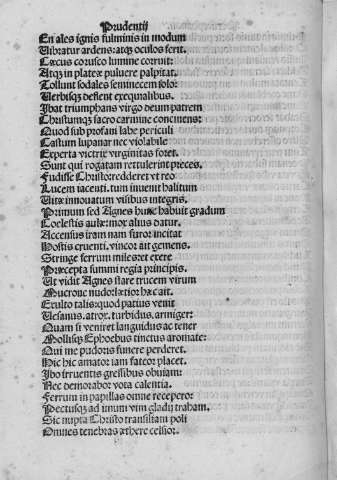 Prudentij
En ales ignis fulminis in modum
Vibratur ardens: atqꝫ oculos ferit.
Cæcus corusco lumine corruit:
Atqꝫ in plateæ puluere palpitat.
Tollunt sodales seminecem solo:
Verbisqꝫ deflent exequialibus.
Ibat triumphans virgo deum patrem
Christumqꝫ sacro carmine concinens:
Quod sub profani labe periculi
Castum lupanar nec violabile
Experta victrix virginitas foret.
Sunt qui rogatam rettulerint preces.
Fudisse Christo redderet vt reo
Lucem iacenti. tum iuueni halitum
Vitæ innouatum visibus integris.
Primum sed Agnes hunc habuit gradum
Cœlestis aulæ: mox alius datur.
Accensus iram nam furor incitat
Hostis cruenti. vincor ait gemens.
Stringe ferrum miles: et exere
Præcepta summi regia principis.
Vt vidit Agnes stare trucem virum
Mucrone nudo: lætior hæc ait.
Exulto talis: quod potius venit
Vesanus. atrox. turbidus. armiger:
Quam si veniret languidus ac tener
Mollisqꝫ Ephoebus tinctus aromate:
Qui me pudoris funere perderet.
Hic hic amator iam fateor placet.
Ibo irruentis gressibus obuiam:
Nec demorabor vota calentia.
Ferrum in papillas omne recepero:
Pectusqꝫ ad imum vim gladij traham.
Sic nupta Christo transiliam poli
Omnes tenebras æthere celsior.